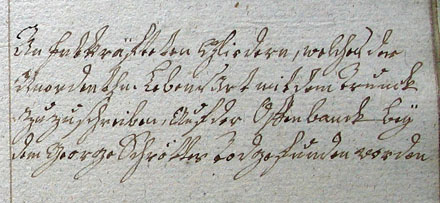 An Entkräfteten Gliedern, welches der
Unordentl. Lebens Art mit dem Trunck
zuzuschreiben, Auf der Ofenbanck beÿ
dem George Schrötter Tod gefunden worden